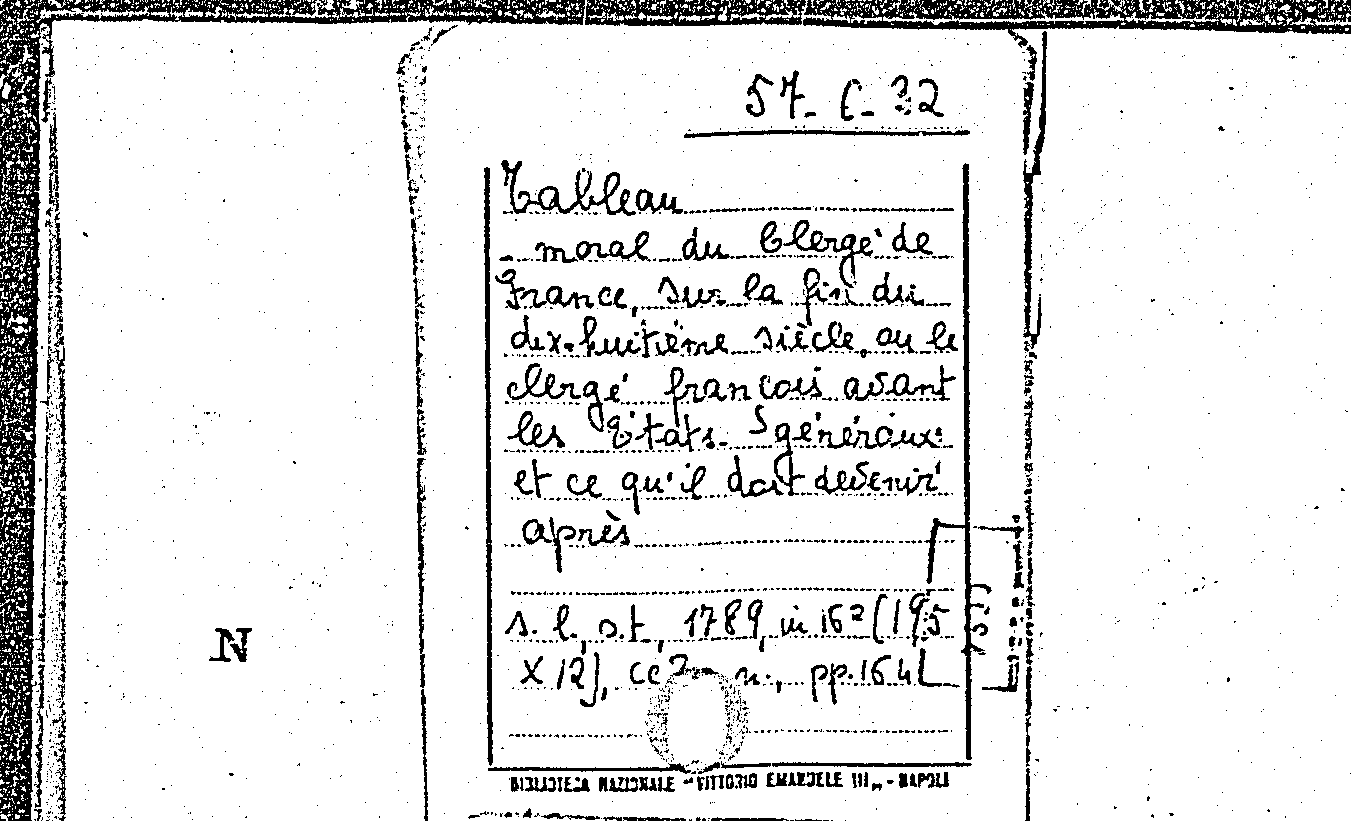 57-C-32
Tableau
- moral du Clergé de
France, sur la fin du
dix-huitième siècle, ou le
clergé françois avant
les États-généraux
et ce qu'il doit devenir
après
s. l., s.t., 1789, in 16º (19,5
X 12), cc n., pp. 164
N
BIBLIOTECA NAZIONALE - "VITTORIO EMANUELE III" - NAPOLI